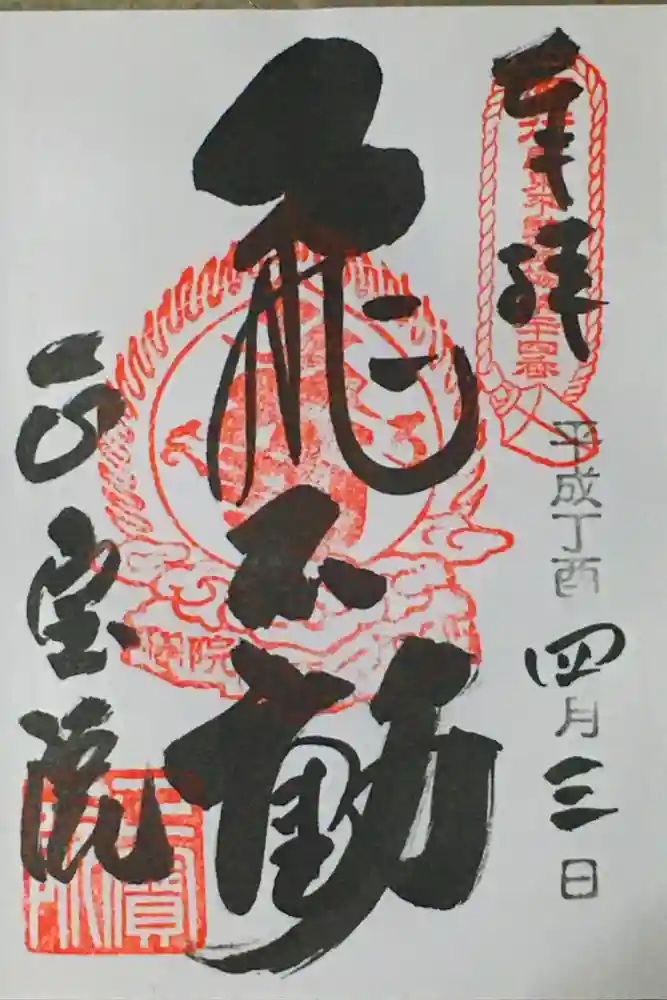 奉拝
平成丁酉 四月三日
飛不動
正宝院